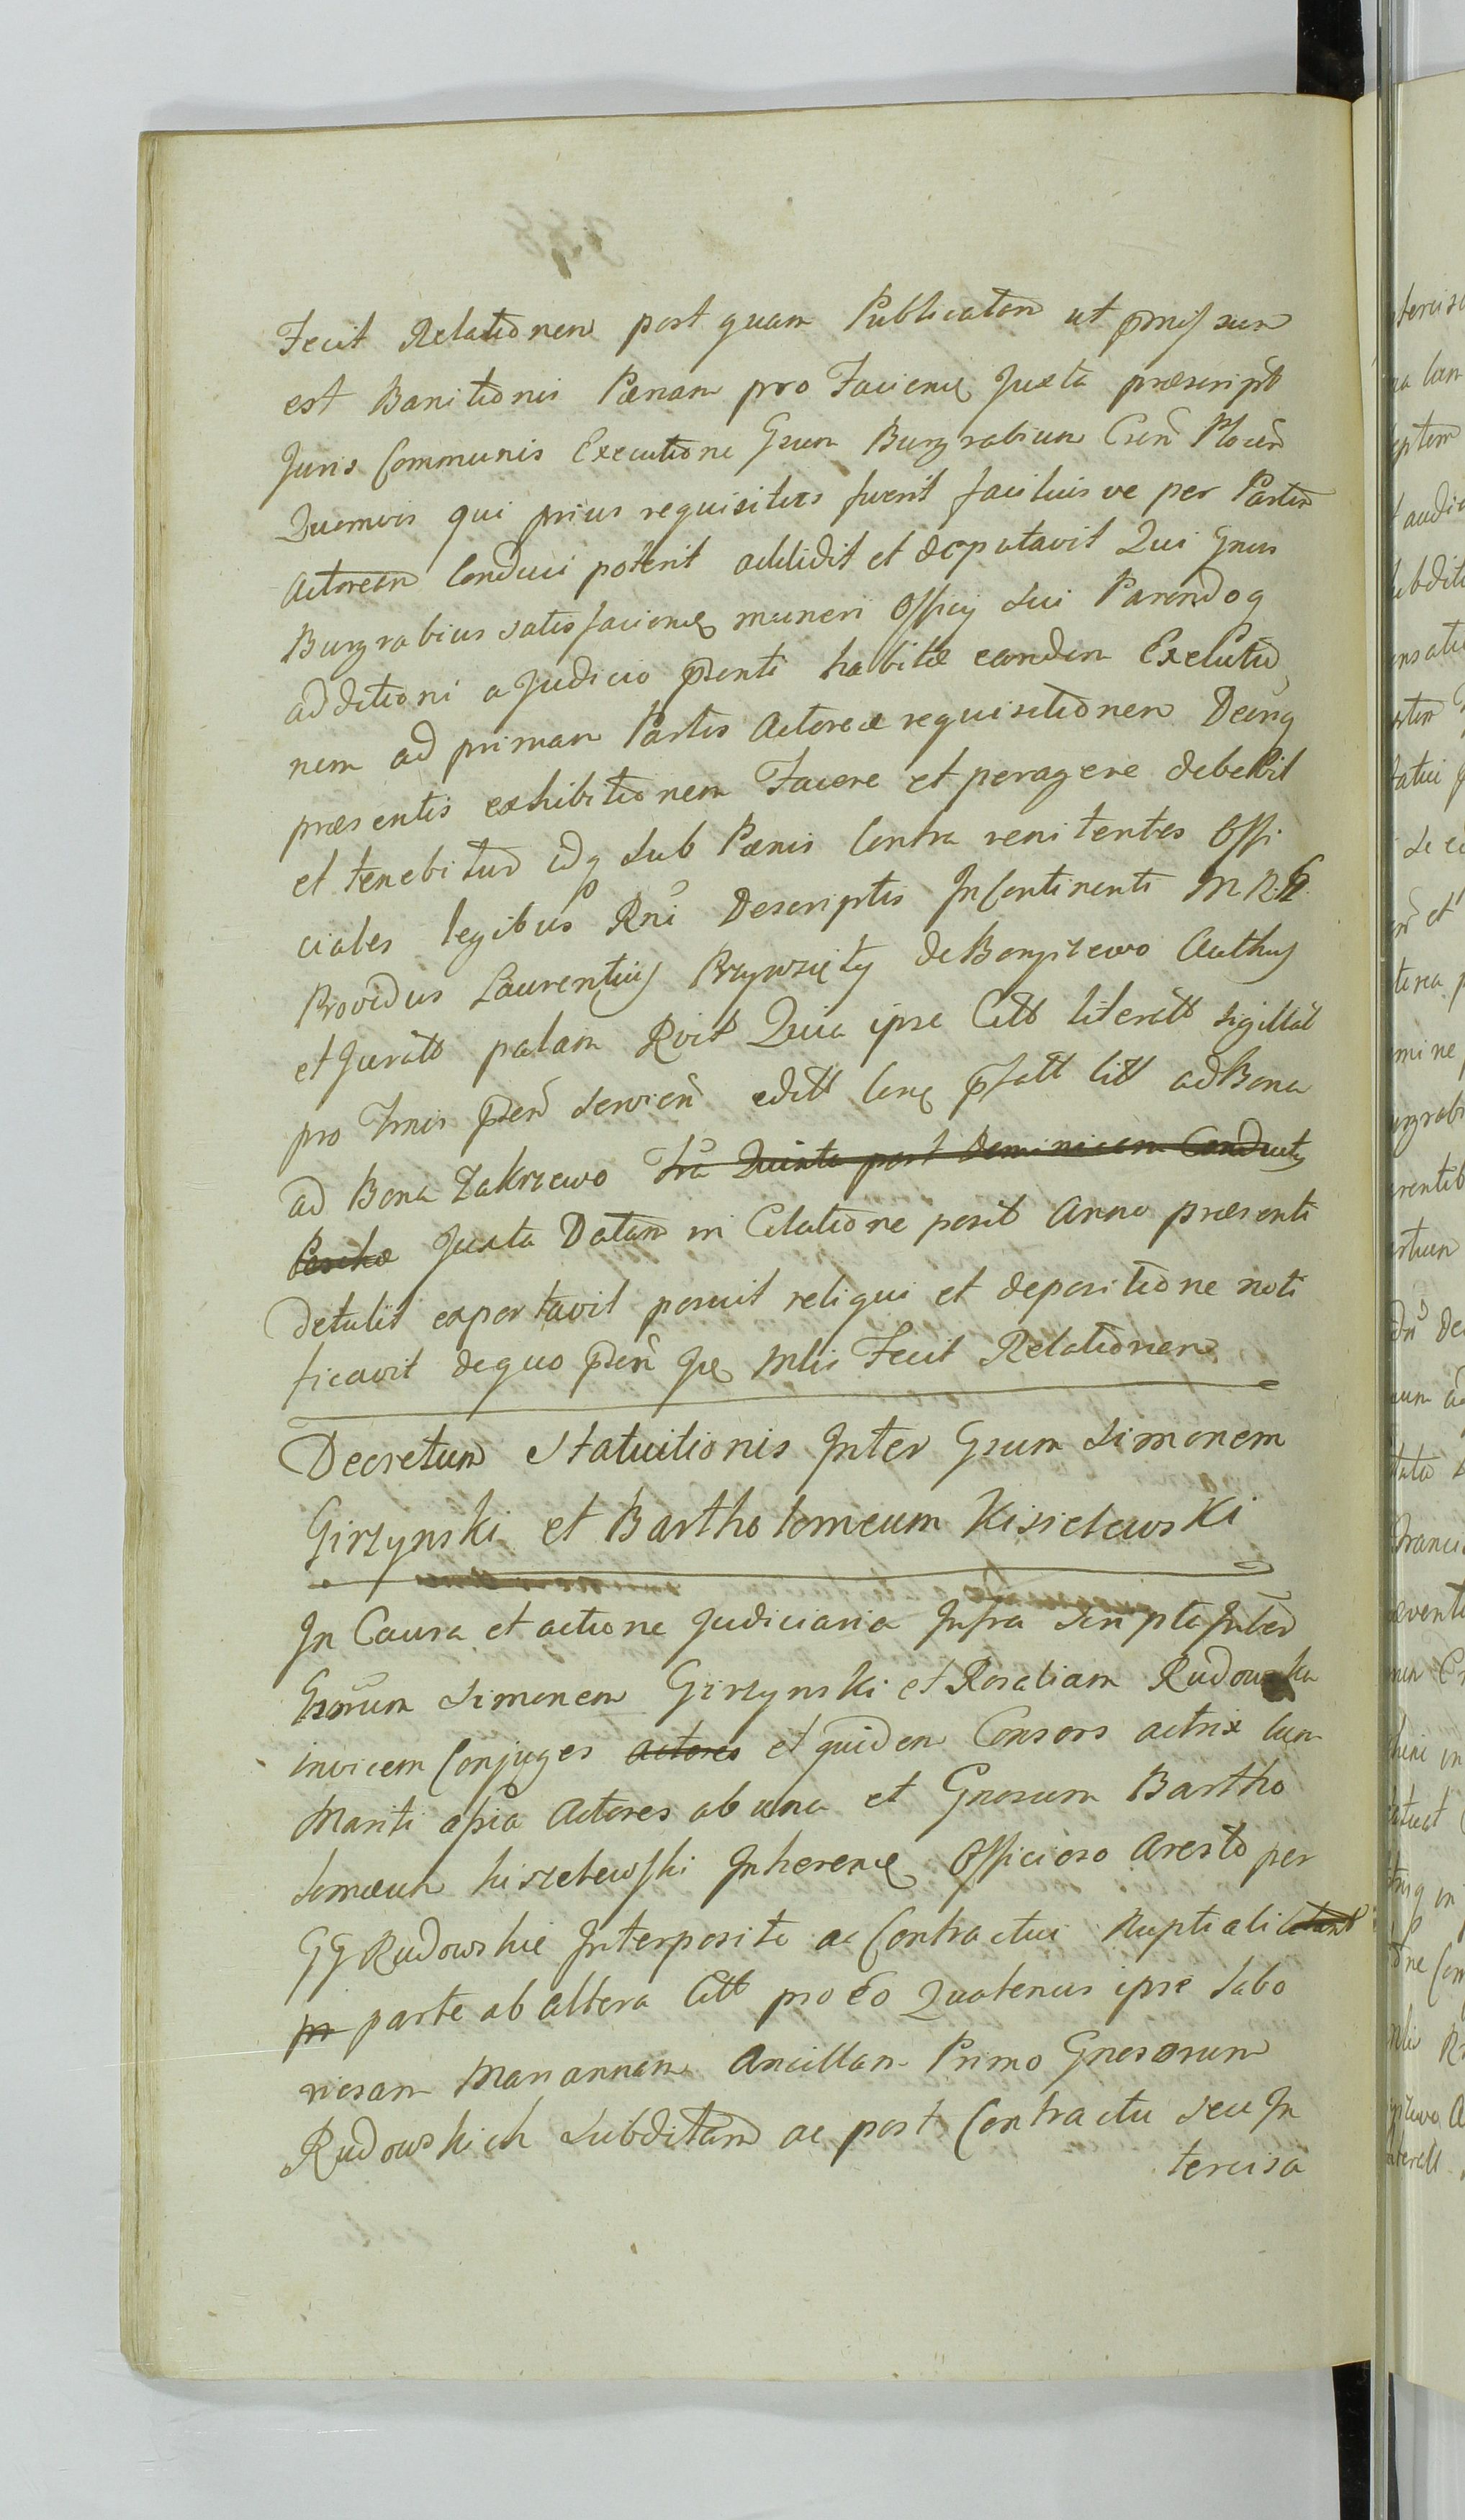 Fecit Relationem post quam Publicatam ut pmissum
est Banitionis Pænam pro Faciend Juxta præscript
Juris Communis Executione Gsum Burgrabium Csen Plocen
Quemvis qui prius requisitus fuerit faciliusve per Partem
Actoream Conduci poterit addidit et deputavit Qui Gnus
Burgrabius satisfaciend muneri Officij sui Parendoq
additioni a Judicio psenti habitæ eandem Executio
nem ad primam Partis Actoreæ requisitionem Decriq
præsentis exhibitionem Facere et peragere debebit
et tenebitur idq sub Pænis Contra renitentes Offi
ciales legibus Rni Descriptis InContinenti M.R.G.
Providus Laurentius Przywzięty de Bonyslewo Authus
et Juratt palam Rvit Quia ipse Citt literatt sigillat
pro Tmis psen servien editt Conq pfatt litt ad Bona
ad Bona Zakrzewo Fra Quinta post Dominicam Conductus
Paschæ Juxta Datam in Citatione posit Anno præsenti
detulit exportavit posuit reliqui et depositione noti
ficavit dequo psen Jud Mlis Fecit Relationem
Decretum Statuitionis Inter Gsum Simonem
Girzynski et Bartholomeum Kisielewski
In Causa et actione Judiciaria Infra scripta Inter
Gsorum Simonem Girzynski et Rosaliam Rudowska
invicem Conjuges actores et quidem Consors actrix cum
Mariti assia Actores ab una et Gnosum Bartho
lomæum Kiszelewski Inherend Officioso Aresto per
GG Rudowskie Interposito ac Contractui Nuptiali Citatt
pr parte ab altera Citt pro eo Quatenus ipse labo
riosam Mariannam Ancillam Primo Gnosorum
Rudowskich subditam ac post Contractu seu In
tercisa